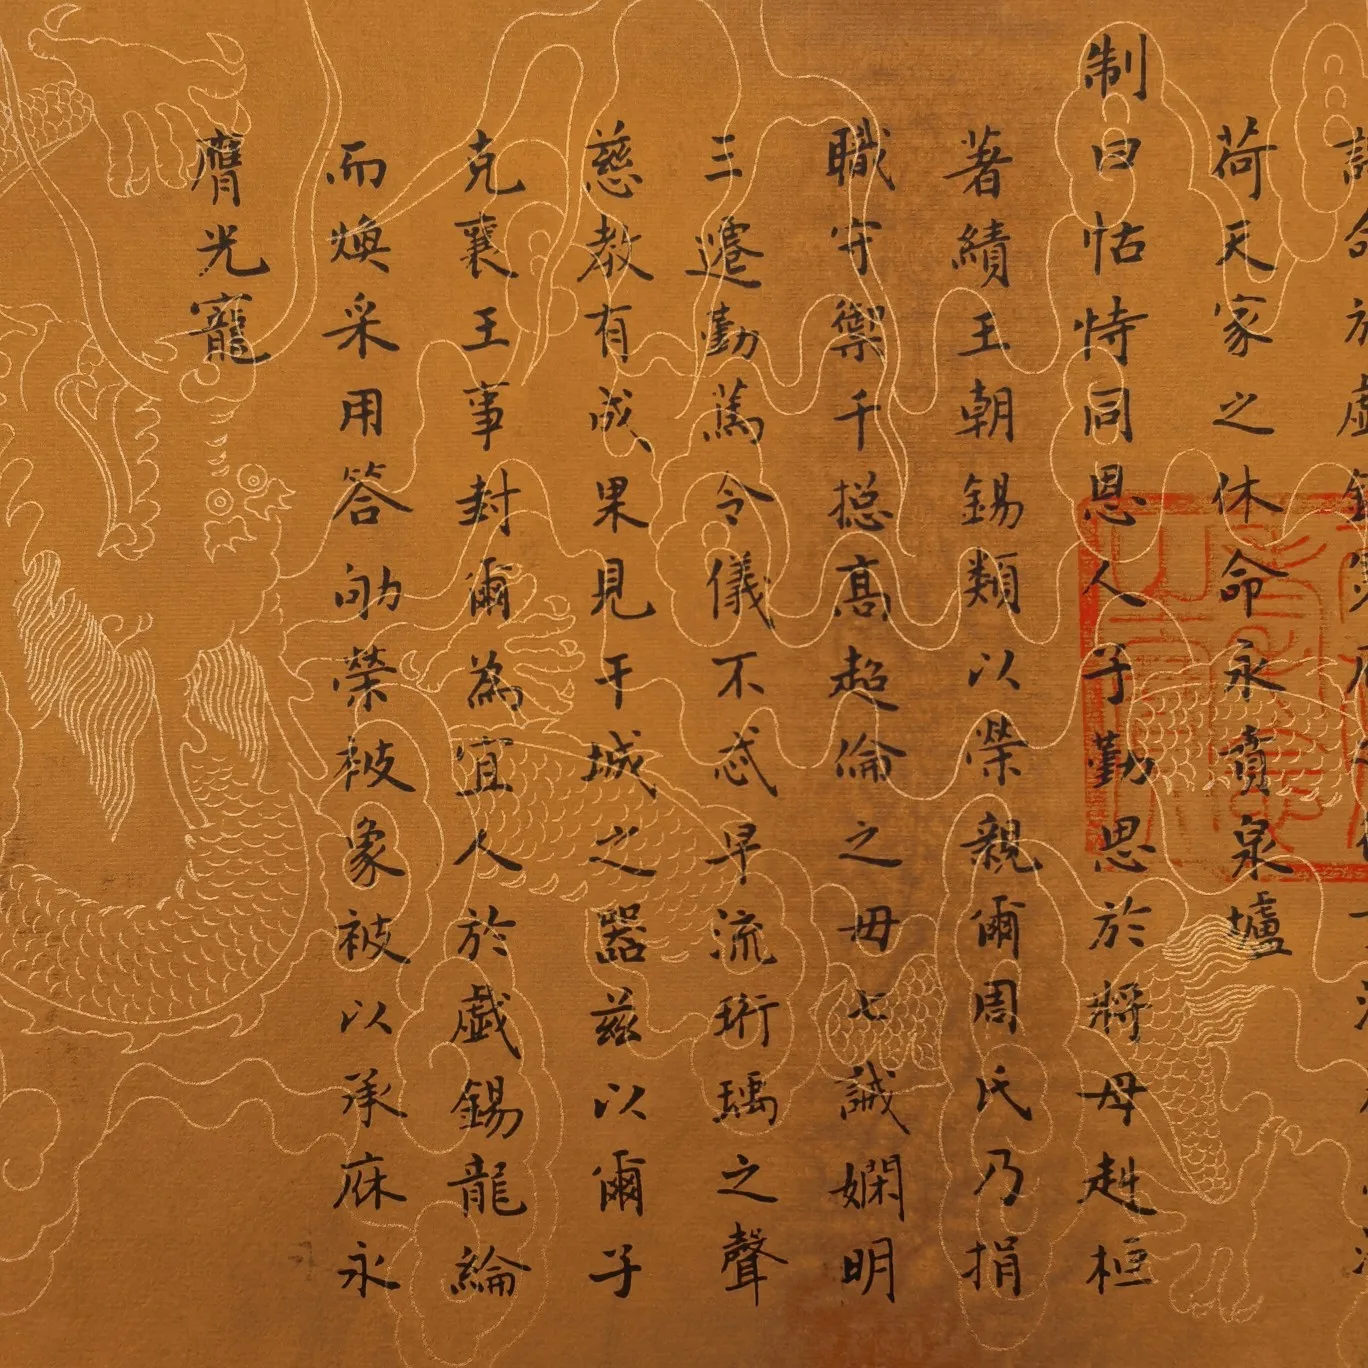 荷天家之休命永賁泉壚
制曰怙恃同恩人子勤思於將母赳桓
著績王朝錫類以榮親爾周氏乃捐
職守禦千摠髙超倫之母七誡嫻明
三遷勤篤令儀不忒早流珩瑀之聲
慈教有成果見干城之器茲以爾子
克襄王事封爾為宜人於戲錫龍綸
而煥采用答劬榮被象被以承庥永
膺光寵